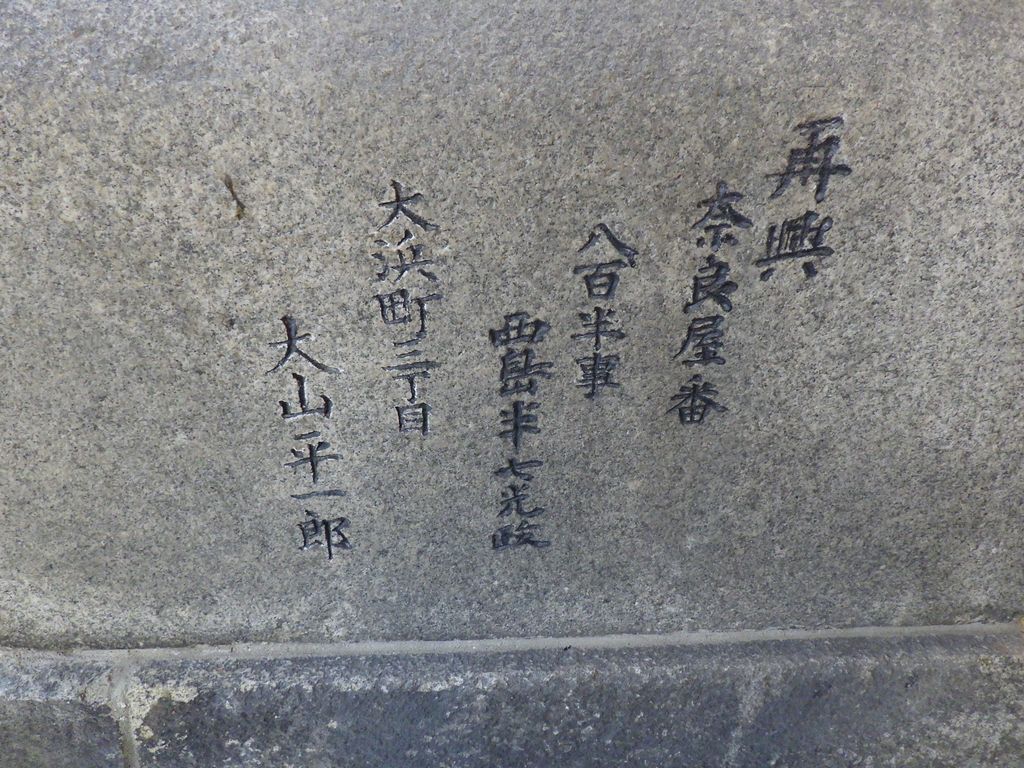 再興
奈良屋番
八百半事
西島半七光政
大浜町三丁目
大山平一郎